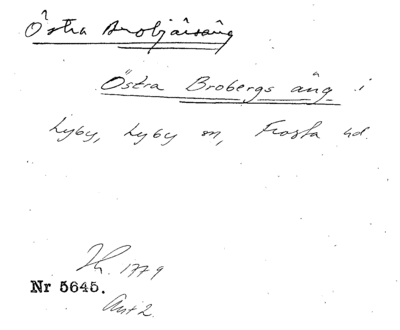 Östra Brobjärsäng
Östra Brobergs äng i
Lyby, Lyby sn, Frosta hd.
1779
Nr 5645.
Akt 2.